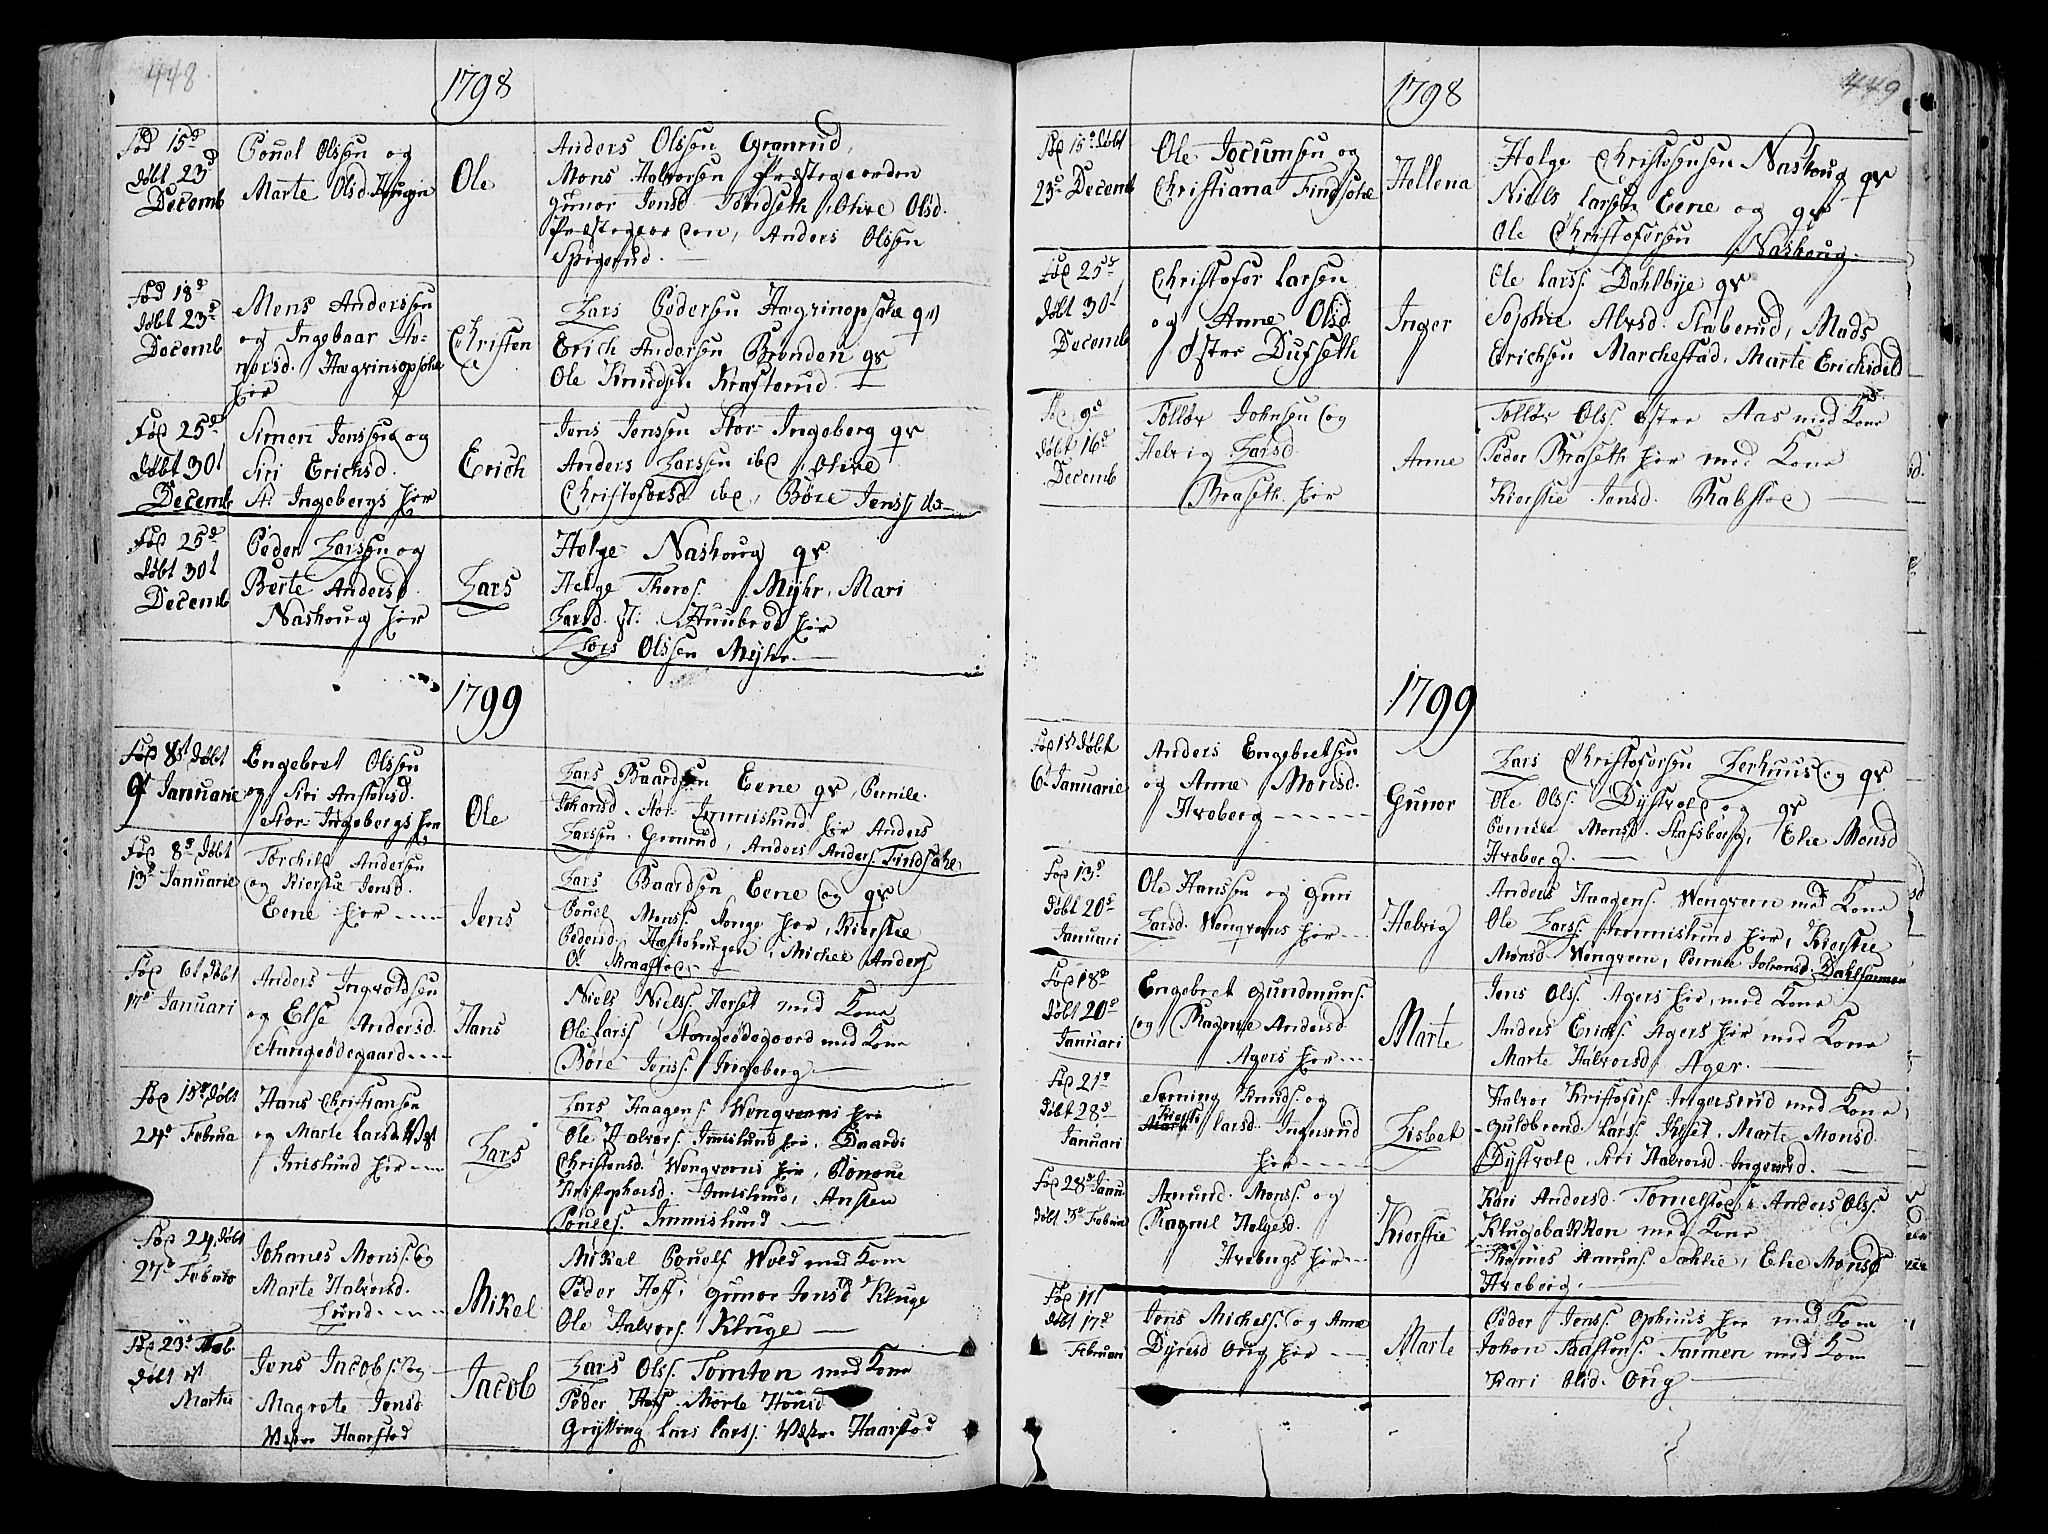 448
1798
Fød 15d
døbt 23d
Decemb
Pouel Olssen og
Marte Olsd. Haugen
Ole
Anders Olssen Grønrud,
Mons Halvorsen Præstegaarden
Gunor Jensd Jøndseth, Olive Olsd.
Præstegaarden, Anders Olssen
Spigerud.
Fød 18d
døbt 23d
Decemb
Mons Anderssen
og Ingebaar Ho-
norsd.
her
Christen
Lars Pedersen qv
Erich Andersen Brenden qv
Ole Knudsen Krafterud
Fød 25d
døbt 30t
Decemb
Simen Jenssen og
Siri Erichsd.
St. Ingebergs her
Erich
Jens Jenssen Stor Ingeberg qv
Anders Larssen ibd, Olive
Christofersd ibd, Børe Jenss ibd
Fød 25d
døbt 30t
Decemb
Peder Larssen og
Berte Andersd
Naskoug her
Lars
Helge Naskoug qv
Helge Thoros. Myhr, Mari
Larsd. St. her
Lars Olssen Myhr.
1799
Fød 8t døbt
9t Januarie
Engebret Olssen
og Siri Anstensd.
Stor Ingebergs her
Ole
Lars Baardsen Eene qv, Pernile
Johansd. Stor Immislund her Anders
Larssen Grønrud, Anders Anders. Findsahl
Fød 8d døbt
13d Januarie
Torchild Andersen
og Kierstie Jensd.
Eene her
Jens
Lars Baardsen Eene og qv
Pouel Monss. Stange her, Kierstie
Pedersd. Michel Anders
Fød 6t døbt
17d Januari
Anders Ingvoldsen
og Else Andersd.
Stangeødegaard
Hans
Niels Nielss. Herset med Kone
Ole Larss. Stangeødegaard med Kone
Børe Jenss. Ingeberg
Fød 15d døbt
24d Februa
Hans Christiansen
og Marte Larsd. West
Imislund her
Lars
Lars Haagens. Wengværns her
Ole Halvors. Immislund her, Baard
Christensd. Wengværns her,
Kristophersd. Imislund, Ansten
Pouels. Immislund
Fød 24, døbt
27d Februa
Johanes Monss. og
Marte Halvorsd.
Lund
Mikel
Mikel Pouels Wold med Kone
Peder Hoff, Gunor Jensd Kluge
Ole Halvors. Kluge
Fød 23d Feb.
døbt 1st
Martii
Jens Jacobs. og
Magrete Jensd
Westre Haarstad
Jacob
Lars Olss. Tomten med Kone
Peder Hoff. Marte Hansd
Grytting Lars Larss. Westre Haarstad
1798
449
Fød 15d døbt
23d Decemb
Ole Jocumsen og
Christiana Findsahl
Hellena
Helge Christofersen Naskoug qv
Niels Larsen Eene og qv
Ole Christofersen
Naskoug.
Fød 25d
døbt 30t
Decemb
Christofer Larsen
og Anne Olsd.
Øster Dufseth
Inger
Ole Larss. Dahlbye qv
Sophie Alvsd. Staberud, Mads
Erichsen Marchestad, Marte Erichsd ibd
Fød 9d
døbt 16d
Decemb
Tollør Johnsen og
Helvig Larsd.
Braseth her
Anne
Tollør Olss. Østre Aas med Kone
Peder Braseth her med Kone
Kierstie Jensd. Rabstad
1799
Fød 1st døbt
6t Januarie
Anders Engebretsen
og Anne Monsd.
Hveberg
Gunor
Lars Christofersen Lerhuus og qv
Ole Olss. Dystvold og qv
Pernille Monsd. Stafsberg, Elie Monsd
Hveberg.
Fød 13d
døbt 20d
Januari
Ole Hanssen og Guri
Larsd. Wengværns her
Helvig
Anders Haagens. Wengværn med Kone
Ole Larss. Immislund her, Kierstie
Monsd. Wengværn, Pernille Johansd. Dahlsarmen
Fød 18d
døbt 20d
Januari
Engebret Gundmuns.
og Magnile Andersd.
Agers her
Marte
Jens Olss. Agers her, med Kone
Anders Erichs. Agers her med Kone
Marte Halvorsd. Ager.
Fød 21d
døbt 28d
Januari
Seming Knuds. og
Kiersti Larsd. Ingersrud
her
Lisbet
Halvor Kristofers Ingersrud med Kone
Guldbrand Larss. Marte Monsd.
Dystvold, Siri Halvorsd. Ingersrud.
Fød 28d Janu
døbt 3d Februa
Amund Monss. og
Magnil Helgesd.
Hvebergs her
Kierstie
Kari Andersd. Tomelstad, Anders Olss
Klugebakken med Kone
Thomas Amuns. Sæhlie, Elie Monsd
Hveberg.
Fød 11t
døbt 17d
Februari
Jens Michels. og Anne
Dyresd Oug her
Marte
Peder Jenss. Ophuus her med Kone
Johan Taastens. Farmen med Kone
Kari Olsd. Oug